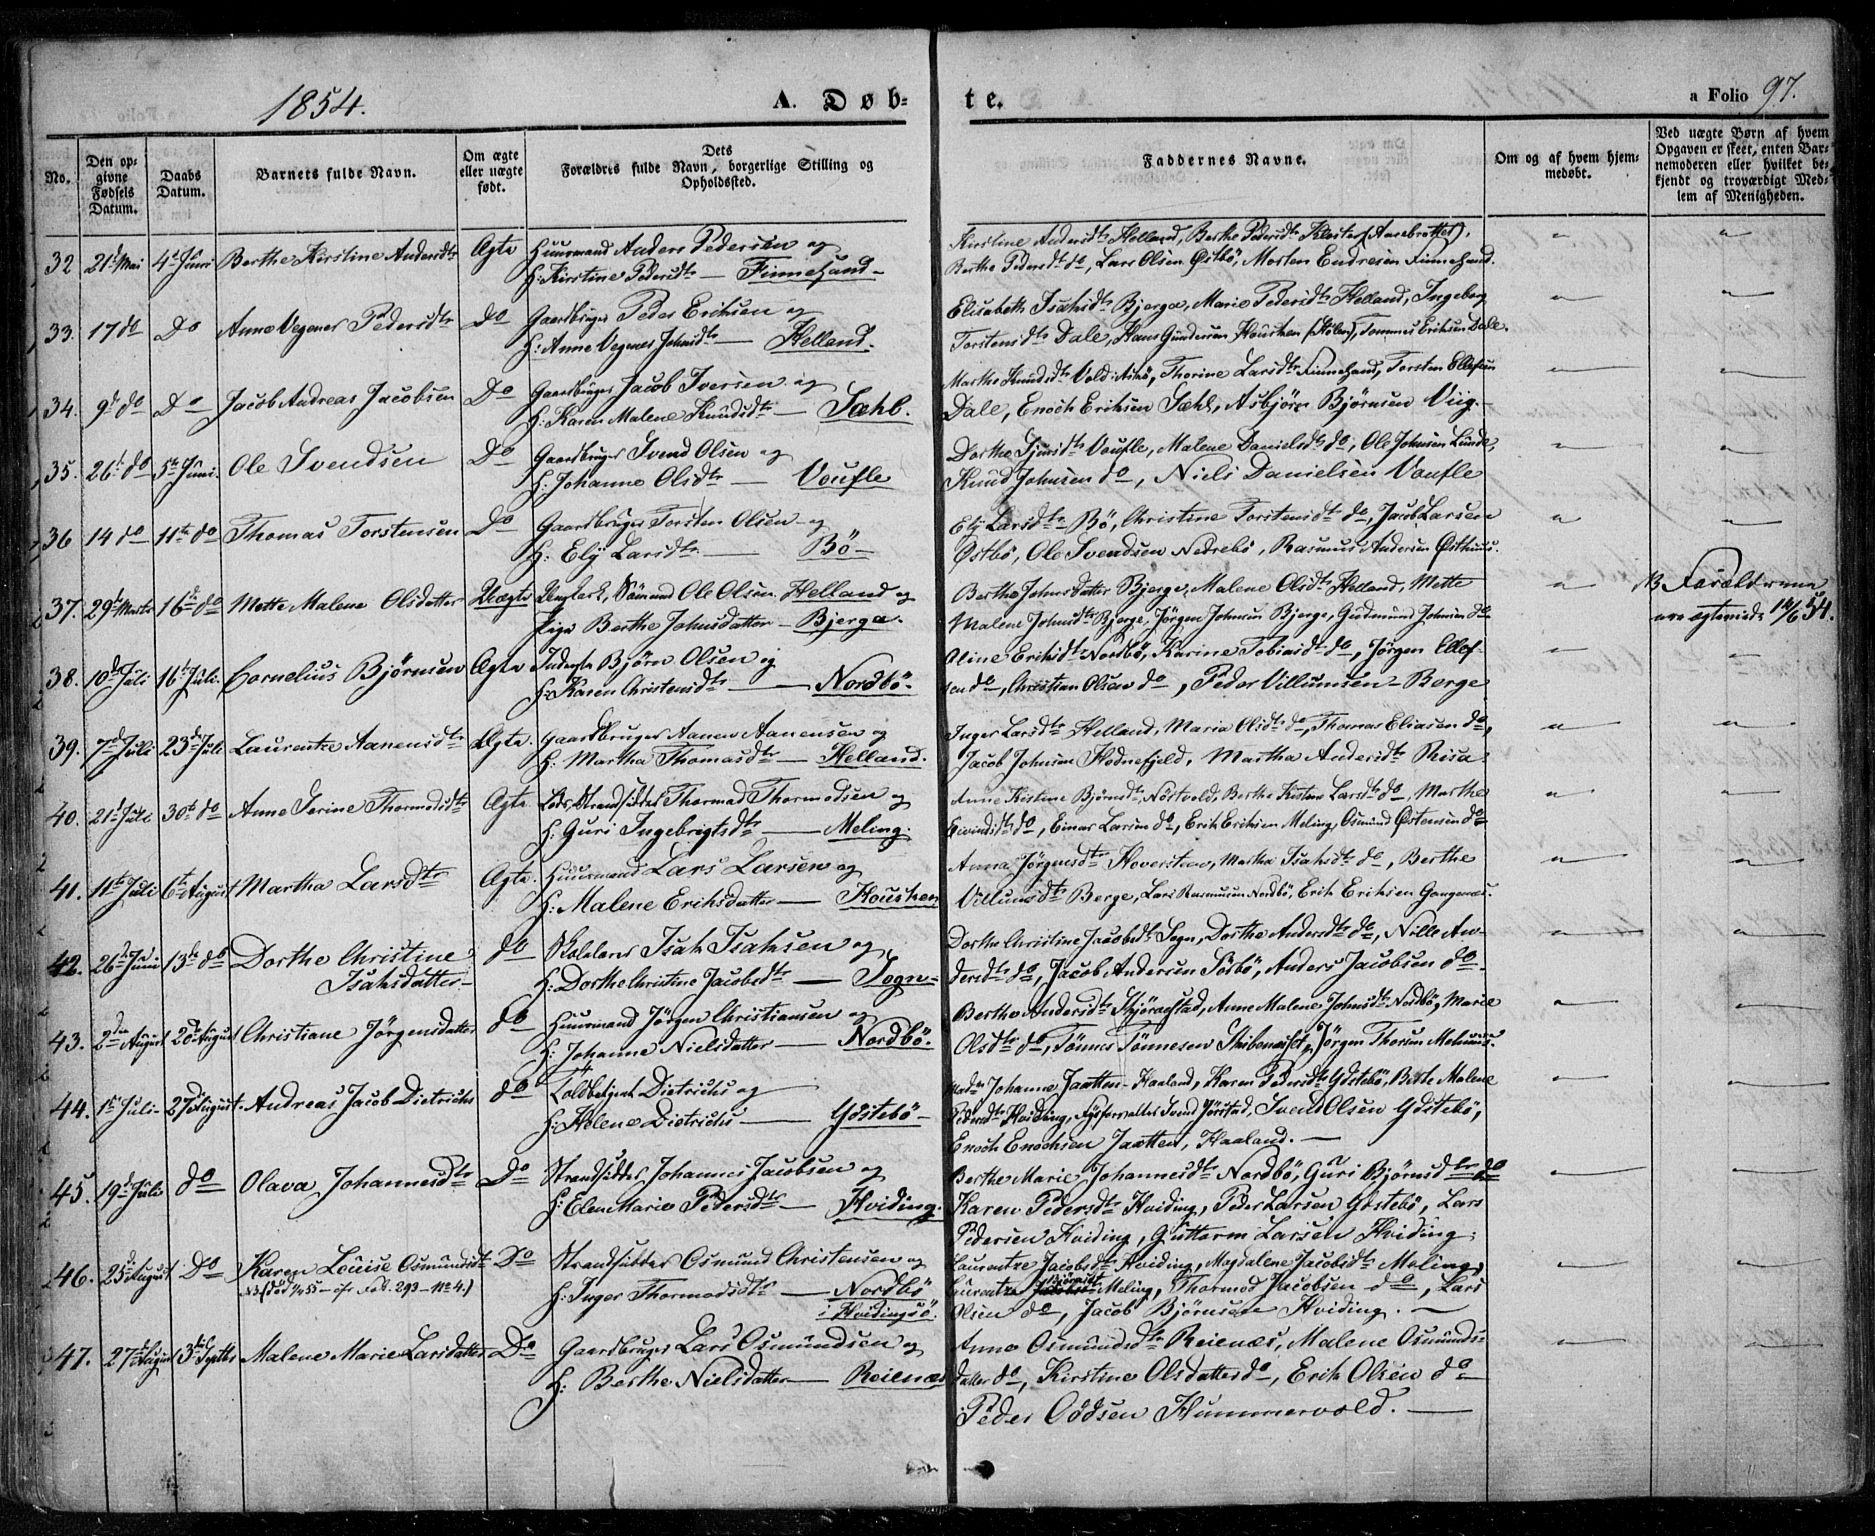 1854.
A. Døb-
te.
a Folio 97.
No.
Den op-
givne
Fødsels
Datum.
Daabs
Datum.
Barnets fulde Navn.
Om ægte
eller uægte
født.
Dets
Forældres fulde Navn, borgerlige Stilling og
Opholdssted.
Faddernes Navne.
Om og af hvem hjem-
medøbt.
Ved uægte Børn af hvem
Opgaven er skeet, enten Bar-
nemoderen eller hvilket be-
kjendt og troværdigt Med-
lem af Menigheden.
32 21d Mai 4de Juni Berthe Kirstine Andersdtr Ægte Huusmand Anders Pedersen og
H: Kirstine Pedersdtr — Finnesand —
Kirstine Andersdtr Helland, Berthe Pedersdtr Kloster (Aarebrottet),
Berthe Pedersdtr do, Lars Olsen Østbö, Morten Endresen Finnesand.
33. 17 do Do Anne Vegener Pedersdtr Do Gaardbruger Peder Eriksen og
H: Anne Vegenes Johnsdtr — Helland.
Elisabeth Isahsdtr Bjerga, Marie Pedersdtr Helland, Ingeborg
Torstensdtr Dale, Hans Gundersen Housken (Hølen), Tommes Eriksen Dale.
34. 9de do Do Jacob Andreas Jacobsen Do Gaardbruger Jacob Iversen og
H: Karen Malene Knudsdtr — Sæhl.
Marthe Knudsdtr Vold Askö, Thorine Larsdtr Finnesand, Torsten Ellefsen
Dale, Enoch Eriksen Sæhl, Asbjörn Bjørnsen Viig.
35. 26d do 5te Juni. Ole Svendsen Do Gaardbruger Svend Olsen og
H: Johanne Olsdtr — Voufle
Dorthe Simsdtr Voufle, Malene Danielsdtr do, Ole Johnsen Lunde,
Knud Johnsen do, Niels Danielsen Voufle
36 14 do 11te do Thomas Torstensen Do Gaardbruger Torsten Olsen og
H: Elj Larsdtr — Bö —
Elj Larsdtr Bö, Christine Torstensdtr do, Jacob Larsen
Østbö, Ole Svendsen Nedrebö, Rasmus Andersen Østhuus.
37. 29d Marts 16de do Mette Malene Olsdatter Uægte Ungkarl, Sömand Ole Olsen Helland og
Pige Berthe Johnsdatter — Bjerga.
Berthe Johnsdatter Bjerge, Malene Olsdtr Helland, Mette
Malene Johnsdtr Bjerge, Jörgen Johnsen Bjerge, Gudmund Johnsen do
B. Forældrene
ere egteviede 16/6 54.
38. 10de Juli 16de Juli. Cornelius Bjørnsen Ægte Inderste Bjørn Olsen og
H: Karen Christensdtr — Nordbö.
Oline Eriksdtr Nordbö, Karine Tobiasdtr do, Jörgen Ellef-
sen do, Christian Olsen do, Peder Villumsen Berge
39. 7de Juli 23de Juli Laurentze Aanensdtr Ægte. Gaardbruger Aanen Aanensen og
H: Martha Thomasdtr — Helland.
Inger Larsdtr Helland, Maria Olsdtr do, Thomas Eliasen do,
Jacob Johnsen Hodnefjeld, Martha Andersdtr Reisa
40. 21d Juli 30te do Anne Serine Thormodsdtr Ægte Lods, Strandsidder Thormod Thormodsen og
H: Guri Ingebrigtsdtr — Meling.
Anne Kistine Bjørnsdtr Nöstvold, Berthe Kistine Larsdtr do, Marthe
Eivindsdtr do, Einar Larsen do, Erik Eriksen Meling, Osmund Østensen do
41. 11te Juli 6te August Martha Larsdtr Ægte. Huusmand Lars Larsen og
H: Malene Eriksdatter — Housken
Anna Jörgensdtr Hoversteen, Martha Isahsdtr do, Berthe
Villumsdtr Berge, Lars Rasmusen Nordbö, Erik Eriksen Gangenæs.
42. 26de Juni 13de do Dorthe Christine
Isahsdatter
do Skolelærer Isah Isahsen og
H: Dorthe Christine Jacobsdtr — Sogn —
Dorthe Christine Jacobsdtr Sogn, Dorthe Andersdtr do, Nille An-
dersdtr do, Jacob Andersen Södbö, Anders Jacobsen do
43. 2den August 20de August Christiane Jørgensdatter do Huusmand Jörgen Christiansen og
H: Johanne Nielsdatter — Nordbö.
Berthe Andersdtr Skjöragstad, Anne Malene Johnsdtr Nordbö, Marie
Olsdtr do, Tönnes Tönnesen Skibenæset, Jörgen Thorsen Mehuus.
44. 1ste Juli 27de August. Andreas Jacob Dietrichs do Toldbetjent Dietrichs og
H: Helene Dietrichs — Ydstebö —
Mad: Johanne Jaatten Haaland, Karen Pedersdtr Ydstebö, Berte Malene
Pedersdtr Hviding, Fyrforvalter Svend Jörstad, Svend Olsen Ydstebö,
Enoch Enochsen Jaatten, Haaland. —
45. 19de Juli do Olava Johannesdtr Do Strandsidder Johannes Jacobsen og
H: Elen Marie Pedersdtr — Hviding.
Berthe Marie Johannesdtr Nordbö, Guri Björnsdtr do
Karen Pedersdtr Hviding, Peder Larsen Ydstebö, Lars
Pedersen Hviding, Guttorm Larsen Hviding.
46. 25de August Do Karen Louise Osmundsdtr Do Strandsidder Osmund Christensen og
NB. (död 1/4 55 — cfr Fol. 293 — No 4.)
H: Inger Thormodsdtr — Nordbö
i Hvidingsö
Laurentze Jacobsdtr Hviding, Magdalene Jacobsdtr Meling,
Laurentze Bjørnsdtr Meling, Thormod Jacobsen do, Lars
Olsen do, Jacob Bjørnsen Hviding. —
47. 27de August 3die Septbr Malene Marie Larsdatter Do Gaardbruger Lars Osmundsen og
H: Berthe Nielsdatter — Reienæs
Anne Osmundsdtr Reienæs, Malene Osmunds-
datter do, Kirstine Olsdatter do, Erik Olsen do
Peder Oddsen Hummervold. —